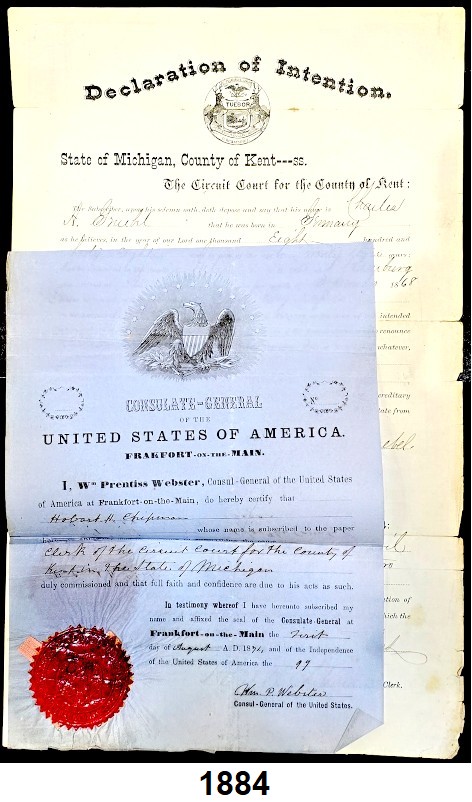 Declaration of Intention.
TUEBOR
State of Michigan, County of Kent---ss.
The Circuit Court for the County of Kent:
The Subscriber, upon his solemn oath doth depose and say that his name is Charles
that he was born in Germany
as he believes, in the year of our Lord one thousand Eight hundred and
1868
intended
renounce
whatever,
hereditary
state from
CONSULATE-GENERAL
OF THE
UNITED STATES OF AMERICA.
FRAKFORT-ON-THE-MAIN.
I, Wm Prentiss Webster, Consul-General of the United States
of America at Frankfort-on-the-Main, do hereby certify that
Hobart H. Chipman
whose name is subscribed to the paper
Clerk of the Circuit Court for the County of
Kent in the State of Michigan
duly commissioned and that full faith and confidence are due to his acts as such.
In testimony whereof I have hereunto subscribed my
name and affixed the seal of the Consulate-General at
Frankfort-on-the-Main the First
day of August A. D. 1874, and of the Independence
of the United States of America the 99
Wm. P. Webster
Consul-General of the United States.
ation of
which the
Clerk.
1884